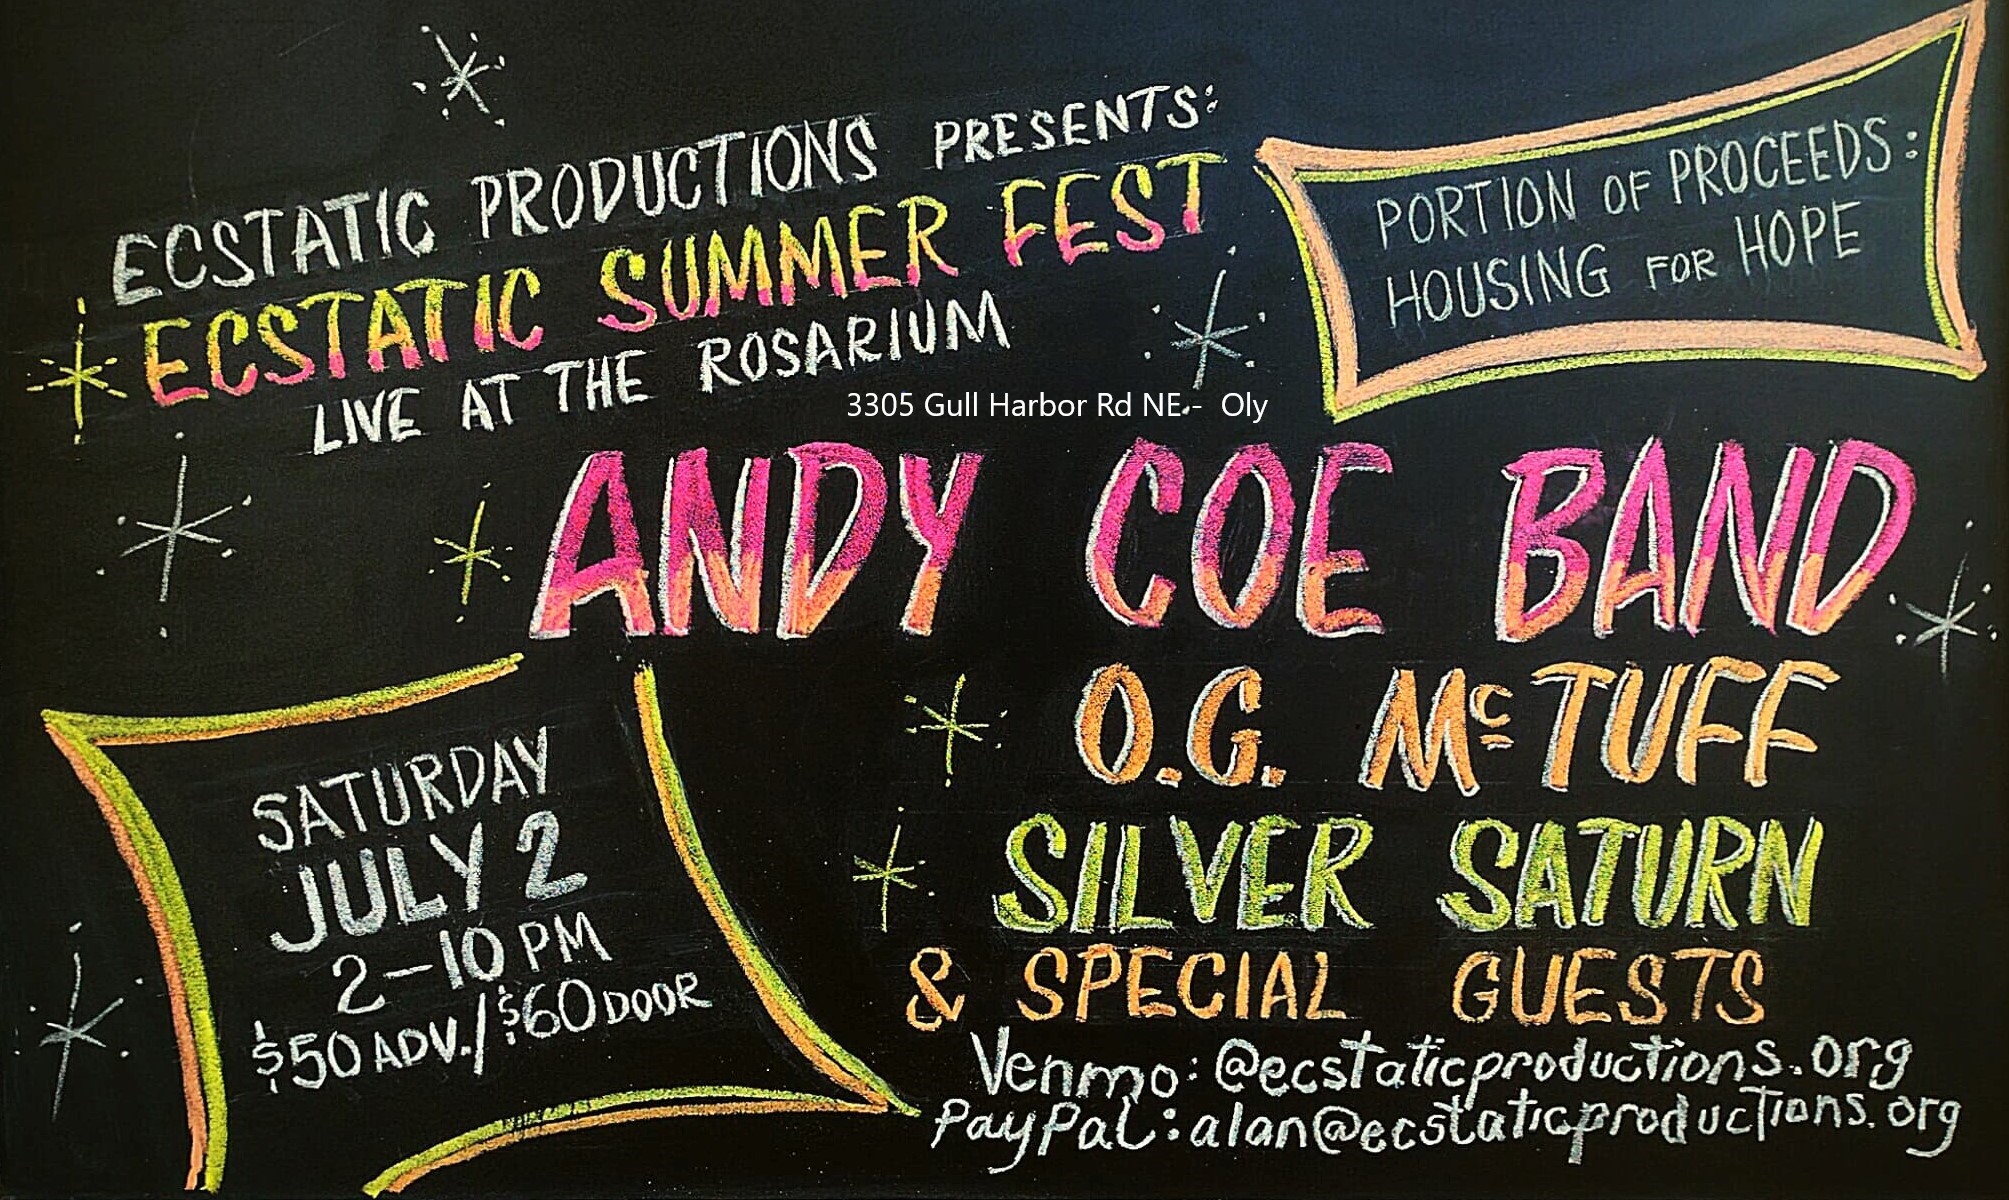 ECSTATIC PRODUCTIONS PRESENTS:
ECSTATIC SUMMER FEST
LIVE AT THE ROSARIUM
3305 Gull Harbor Rd NE - Oly
PORTION OF PROCEEDS:
HOUSING FOR HOPE
ANDY COE BAND
O.G. McTUFF
SILVER SATURN
& SPECIAL GUESTS
SATURDAY
JULY 2
2-10 PM
$50 ADV./$60 DOOR
Venmo: @ecstaticproductions.org
PayPal: alan@ecstaticproductions.org